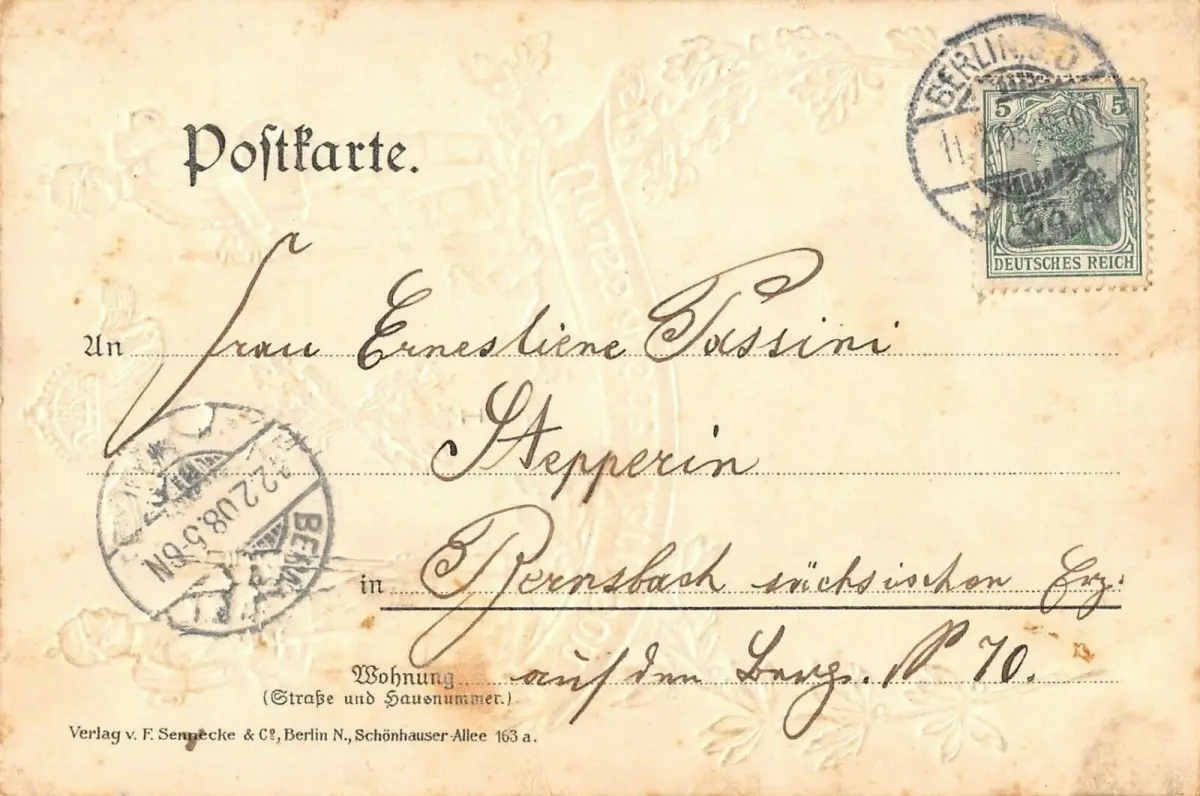 Postkarte.
BERLIN S.O
5 5
DEUTSCHES REICH
An Frau Ernestiene Passini
Stepperin
12.2.08.5-6N
in Bernsbach sächsischen Erz:
auf den Berg. N 70.
Wohnung
(Straße und Hausnummer.)
Verlag v. F. Sennecke & Co, Berlin N., Schönhauser-Allee 163 a.